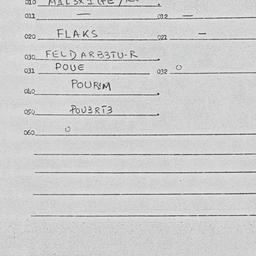 010
011 — 012 —
020 FLAKS 021 —
030 FELDARB3TU-R
031 POUE 032 O
040 POURYM
050 POV3RT3
060 O